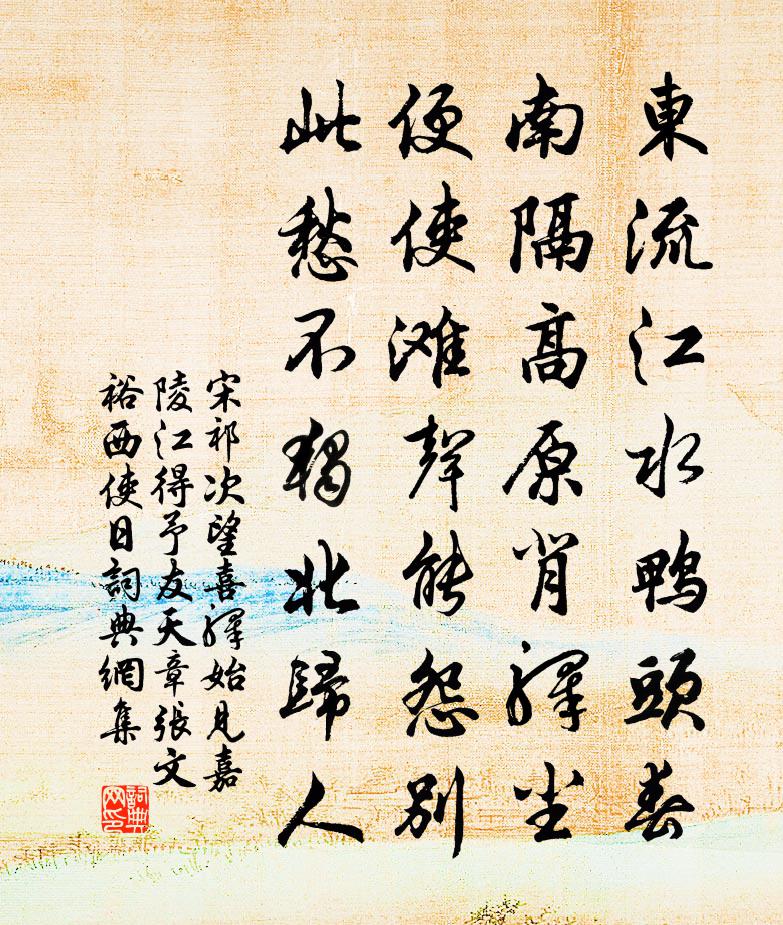 東流江水鴨頭春
南隔高原背驛尘
便使滩聲能怨別
此愁不獨北歸人
宋祁次望喜驛始見嘉
陵江得予友天章張文
裕西使日詞典網集
詞典网印